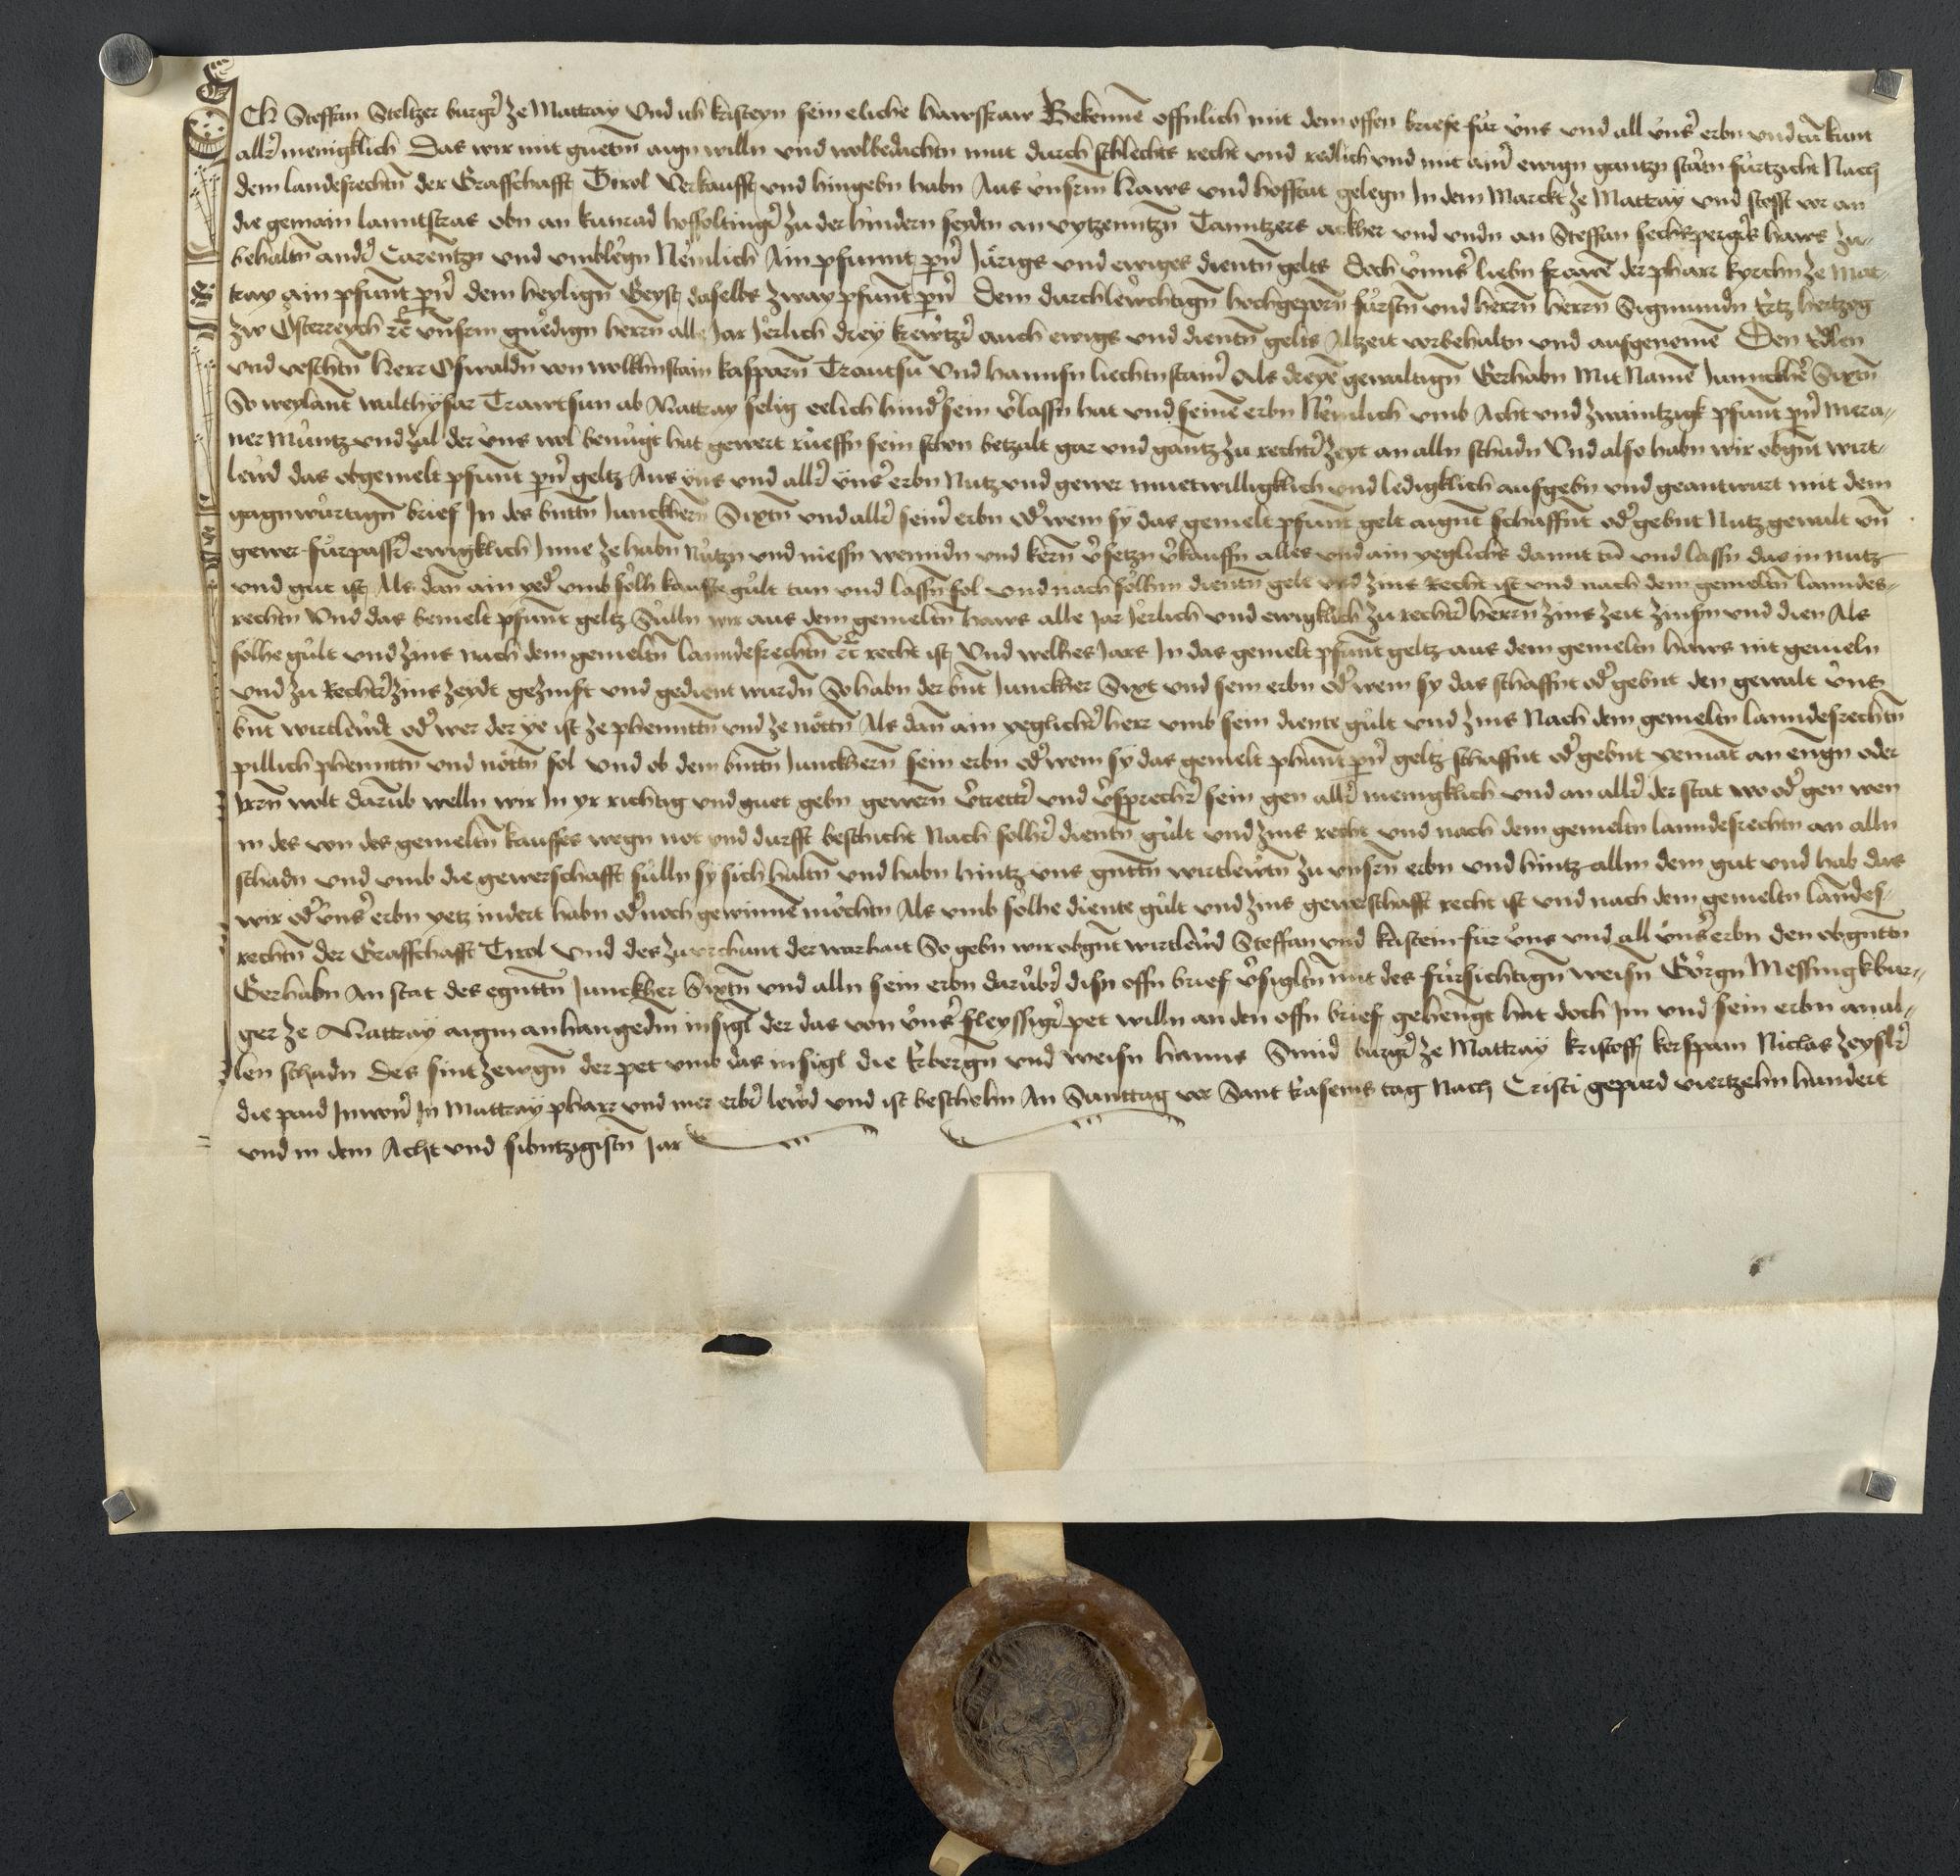 ICh Steffan Steltzer burgr̄ ze Mattray Vnd ich kristeyn sein eliche hawsfraw Bekennē offnlich mit dem offen briefe für vns vnd all vnsr̄ erbn vnd tū kunt
allr̄ menigklich Das wir mit guetm aign willn vnd wolbedachtn mut durch schlechts recht vnd redlich vnd mit ainr̄ ewign gantzn stätn fürtzicht Nach
dem landesrechtn̄ der Graffschafft Tirol Verkaufft vnd hingebn habn Aus vnsrm haws vnd hofstat gelegn In dem Marckt ze Mattray vnd stosst vor an
die gemain lanntstras obn an kunrad hoffoltingr̄ zu der hindern seydn an Tanntzers ackher vnd vndn an Steffan sechspergr̄s haws zu-
behaltn̄ andr̄ vnd vmblegn Nemlich Ain pfunnt pr̄n Järigs vnd ewiges dientn̄ gelts Doch vnnsr̄ liebn frawē der pharr kyrchn ze Mat-
tray ain pfunt pr̄n dem heylign̄ Geyst daselbs zway pfunt pr̄n Dem durchlewchtign̄ hochgeporn̄ fürstn̄ vnd herrn̄ herrn̄ Sigmundn Ertz hertzog
zw Österreych rc̄ vnsrm gnedign herrn̄ alle Jar Jerlich drey krewtzr̄ auch ewigs vnd dientn̄ gelts Altzeit vorbehaltn vnd ausgenomē Den Edlen
vnd vestn̄ herr Oswaldn̄ von wolkhnstain kasparn̄ Trautsun Vnd hannsn liechtnstainr̄ Als dreyē gewaltign̄ Gerhabn Mit Namē Junckhr̄ Sixtn̄
So weylant walthysar Trawtsun ab Mattray selig eelich hindr̄ sein v̄lassn hat vnd seinē erbn Nemlich vmb Acht vnd zwaintzigk pfunt pr̄n mera-
ner Müntz vnd zal der vns wol benügt hat gewert rüeffn sein schon betzalt gar vnd gantz zu rechtr̄ zeyt an alln schadn Vnd also habn wir obgn̄t wirt-
lewd das obgemelt pfunt pr̄n geltz Aus vns vnd allr̄ vnsr̄ erbn Nutz vnd gewer muetwilligklich vnd ledigklich aufgebn vnd geantwurt mit dem
gagnwürtign̄ brief In des bn̄ttn̄ Junckhern̄ Sixtn̄ vnd allr̄ seinr̄ erbn odr̄ wem sy das gemelt pfunt gelt aignt schaffnt odr̄ gebnt Nutz gewalt vn̄
gewer fürpassr̄ ewigklich Inne ze habn Nützn vnd niessn wenndn vnd kern̄ v̄setzn v̄kauffn alles vnd ain yeglichs damit tū vnd lassn das in nutz
vnd gut ist Als dan̄ ain yedr̄ vmb sölh kaufte gült tun vnd lassn̄ sol vnd nach sölhm dientn̄ gelt vnd zins Recht ist vnd nach dem gemeltn̄ lanndes-
rechtn Vnd das bemelt pfunt geltz Sülln wir aus dem gemeltn̄ haws alle Jar Jerlich vnd ewigklich zu rechtr̄ herrn̄ zins zeit zinsn vnd dien Als
sölhe gült vnd zins nach dem gemeltn̄ lanndesrechtn̄ rc̄ recht ist Vnd welhes Jars In das gemelt pfunt geltz aus dem gemeltn haws nit gemeln
vnd zu Rechtr̄ zins zeydt gezinst vnd gedient wurdn̄ So habn der bn̄t Junckher Sixt vnd sein erbn odr̄ wem sy das schaffnt odr̄ gebnt den gewalt vns
bn̄t wirtlewdt odr̄ wer der ye ist ze phenntn̄ vnd ze nöttn̄ Als dan̄ ain yeglichr̄ herr vmb sein diente gült vnd zins Nach dem gemeltn lanndesrechtn̄
pillich phenntn̄ vnd nöttn̄ sol Vnd ob dem bn̄ttn̄ Junckhern̄ sein erbn odr̄ wem sy das gemelt phunt pr̄n geltz schaffnt odr̄ gebnt yemāt an engn oder
Irrn̄ wolt darūb welln wir In yr richtig vnd guet gebn gewern̄ v̄trettr̄ vnd v̄sprechr̄ sein gen allr̄ menigklich vnd an allr̄ der stat wo odr̄ gen wen
in des von des gemeltn̄ kauffes wegn not vnd durfft beschicht Nach sölhr̄ dientn̄ gült vnd zins recht vnd nach dem gemeltn lanndesrechtn an alln
schadn vnd vmb die gewerschafft sülln sy sich haltn̄ vnd habn hintz vns gn̄ttn̄ wirtlewtn̄ zu vnsrn̄ erbn vnd hintz allm dem gut vnd hab das
wir odr̄ vnsr̄ erbn yetz indert habn odr̄ noch gewinnē möchtn Als vmb sölhe diente gült vnd zins gewerschafft recht ist vnd nach dem gemeltn landes-
rechtn̄ der Graffschafft Tirol Vnd des zu vrchunt der warhait So gebn wir obgn̄t wirtlewd Steffan vnd kristein für vns vnd all vnsr̄ erbn den obgn̄ttn
Gerhabn An stat des egn̄ttn̄ Junckher Sixtn̄ vnd alln sein erbn darübr̄ disn offn brief v̄sigltn̄ mit des fürsichtign̄ weisn̄ Görgn Messingk bur-
ger ze Mattray aigm anhangedm insigl der das von vnsr̄ fleyssigr̄ pet willn an den offn brief gehengt hat doch Im vnd sein erbn an al-
len schadn Des sint zewgn̄ der pet vmb das insigl die Erbergn̄ vnd weisn hanns Smid burgr̄ ze Mattray kristoff kerspam Niclas zeyslr̄
die paid Inwonr̄ In Mattray pharr vnd mer erbr̄ lewd vnd ist beschehn An Sunttag vor Sant Erasems tag Nach Cristi gepurd viertzehn hundert
vnd in dem Acht vnd sibntzigistn̄ Jar